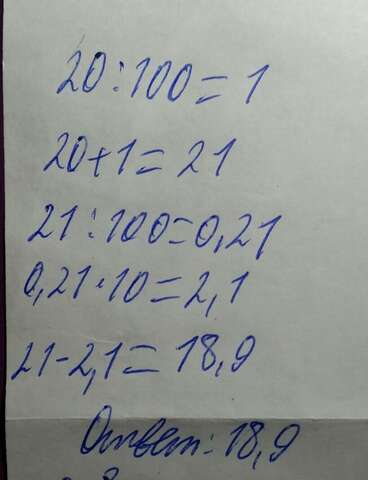 20:100=1
20+1=21
21:100=0,21
0,21·10=2,1
21-2,1=18,9
Ответ: 18,9